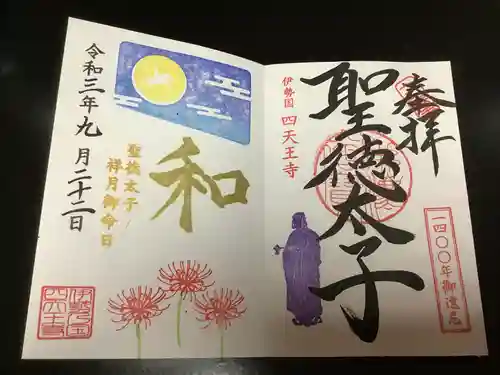 奉拝
聖徳太子
伊勢国 四天王寺
一四〇〇年御遠忌
和
聖徳太子
祥月御命日
令和三年九月二十二日